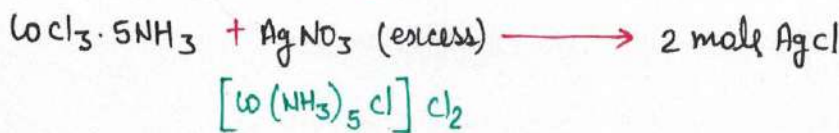 CoCl₃·5NH₃ + AgNO₃ (excess) ⟶ 2 mole AgCl
[Co(NH₃)₅Cl]Cl₂